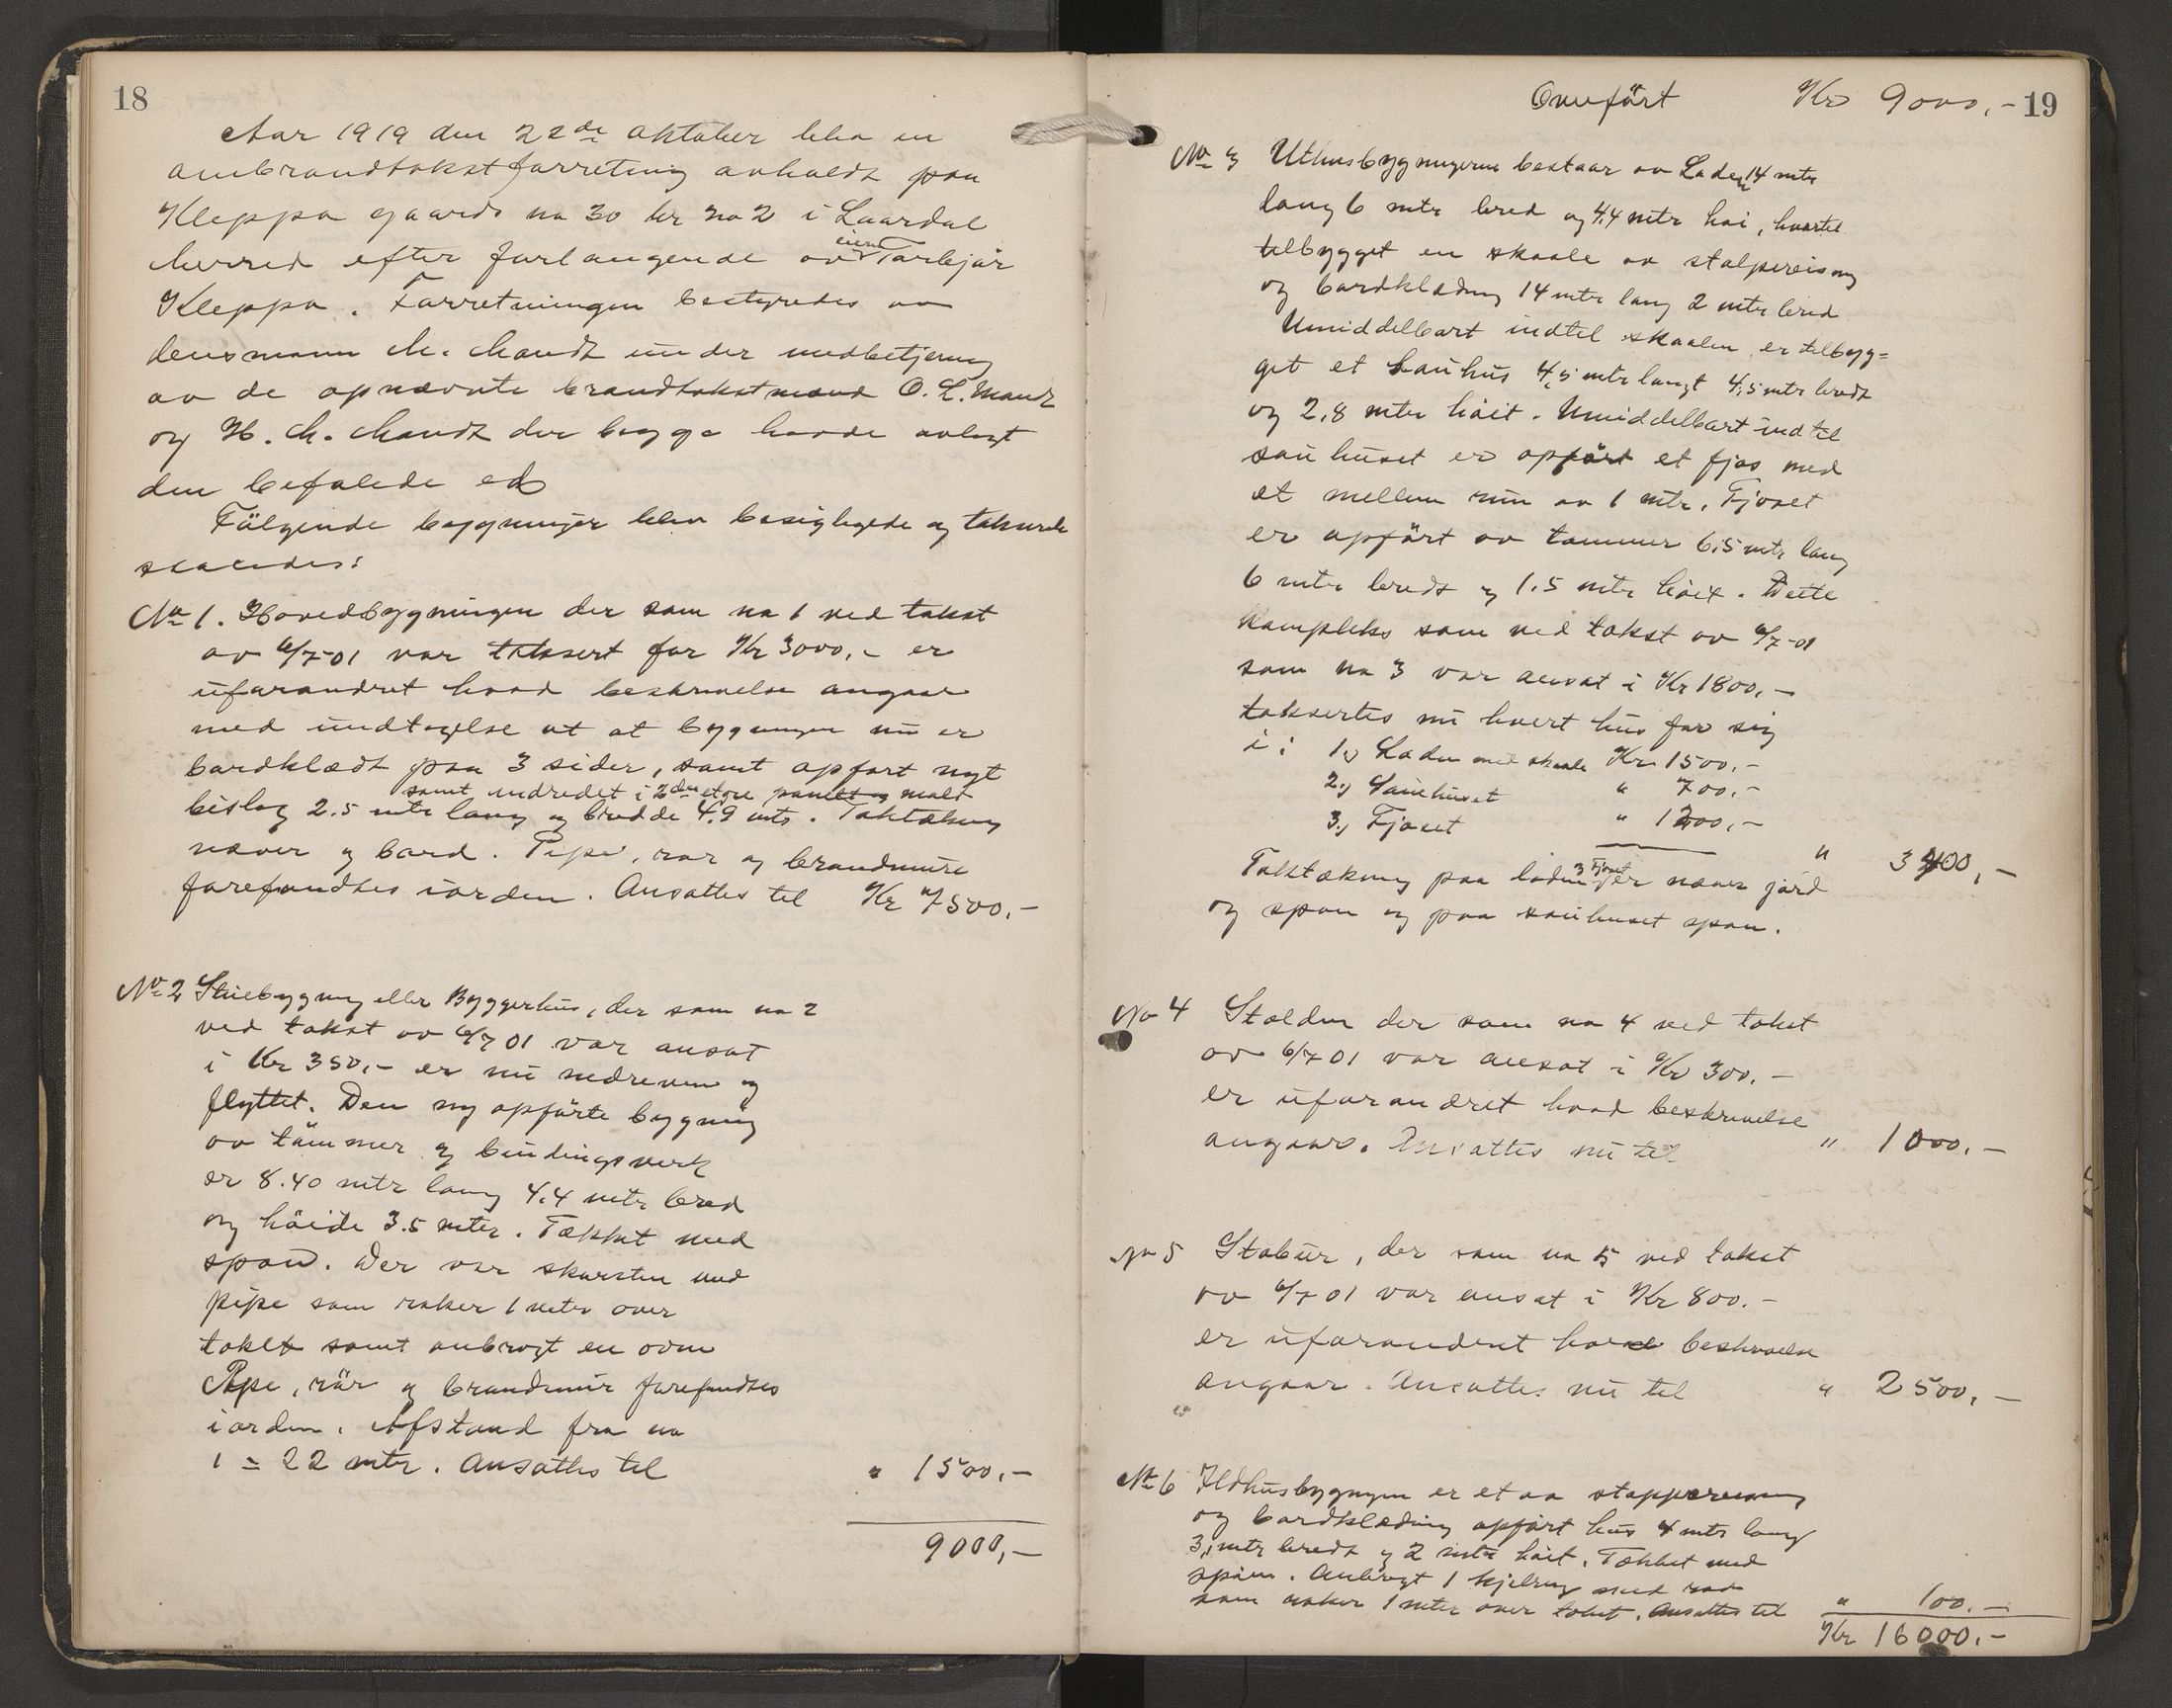 18
Aar 1919 den 22de oktober blev en
ombrandtakstforretning avholdt paa
Kleppa gaards no 30 br no 2 i Laardal
herred efter forlangende av eieren Torbjør
Kleppa. Forretningen bestyredes av
lensmann M. Mandt under medbetjening
av de opnævnte brandtakstmænd O. L. Mandt
og H. M. Mandt der begge havde avlagt
den befalede ed
Følgende bygninger blev besigtigede og takserte
saaledes:
No 1. Hovedbygningen der som no 1 ved takst
av 6/7-01 var taksert for Kr 3000,- er
uforandret hvad beskrivelse angaar
med undtagelse at at bygningen nu er
bordklædt paa 3 sider, samt opført nyt
samt indredet i 2den etage panelt og malt
bislag 2.5 mtr lang og bredde 4.9 mtr. Taktækning
næver og bord. Pipe, rør og brandmure
forefandtes iorden. Ansattes til Kr 7500,-
No 2 Stuebygning eller Byggerhus, der som no 2
ved takst av 6/7 01 var ansat
i Kr 350,- er nu nedreven og
flyttet. Den ny opførte bygning
av tømmer og bindingsverk
er 8.40 mtr lang 4.4 mtr bred
og høide 3.5 meter. Tækket med
spon. Der var skorsten med
pipe som raker 1 meter over
taket samt anbragt en ovn
Pipe, rør og brandmur forefandtes
iorden. Afstand fra no
1 = 22 mtr. Ansattes til " 1500,-
9000,-
Overført Kr 9000,- 19
No 3 Uthusbygningerne bestaar av Laden 14 mtr
lang 6 mtr bred og 4,4 mtr høi, hvortil
tilbygget en skaale av stolpereisning
og bordklædning 14 mtr lang 2 mtr bred
Umiddelbart indtil skaalen er tilbyg=
get et sauhus 4,5 mtr langt 4,5 mtr bredt
og 2,8 mtr høit. Umiddelbart indtil
sauhuset er opført et fjøs med
et mellem rum av 1 mtr. Fjøset
er opført av tømmer 6,5 mtr lang
6 mtr bredt og 1.5 mtr høit. Dette
kompleks som ved takst av 6/7-01
som no 3 var ansat i Kr 1800,-
taksertes nu hvert hus for sig
i: 1.) Laden med skaale Kr 1500,-
2.) Sauehuset " 700,-
3.) Fjøset " 1200,-
" 3400,-
Taktækning paa laden 3 Fjøset er næver jord
og spon og paa sauhuset spon.
No 4 Stalden der som no 4 ved takst
av 6/7 01 var ansat i Kr 300,-
er uforandret hvad beskrivelse
angaar. Ansattes nu til " 1000,-
No 5 Stabur, der som no 5 ved takst
av 6/7 01 var ansat i Kr 800.-
er uforandret hvad beskrivelse
angaar. Ansattes nu til " 2500,-
No 6 Ildhusbygningen er et av
og bordklædning opført hus 4 mtr lang
3,1 mtr bredt og 2 mtr høit. Tækket med
spon. Anbragt 1 med
som raker 1 meter over taket. Ansattes til " 100.-
Kr 16000.-